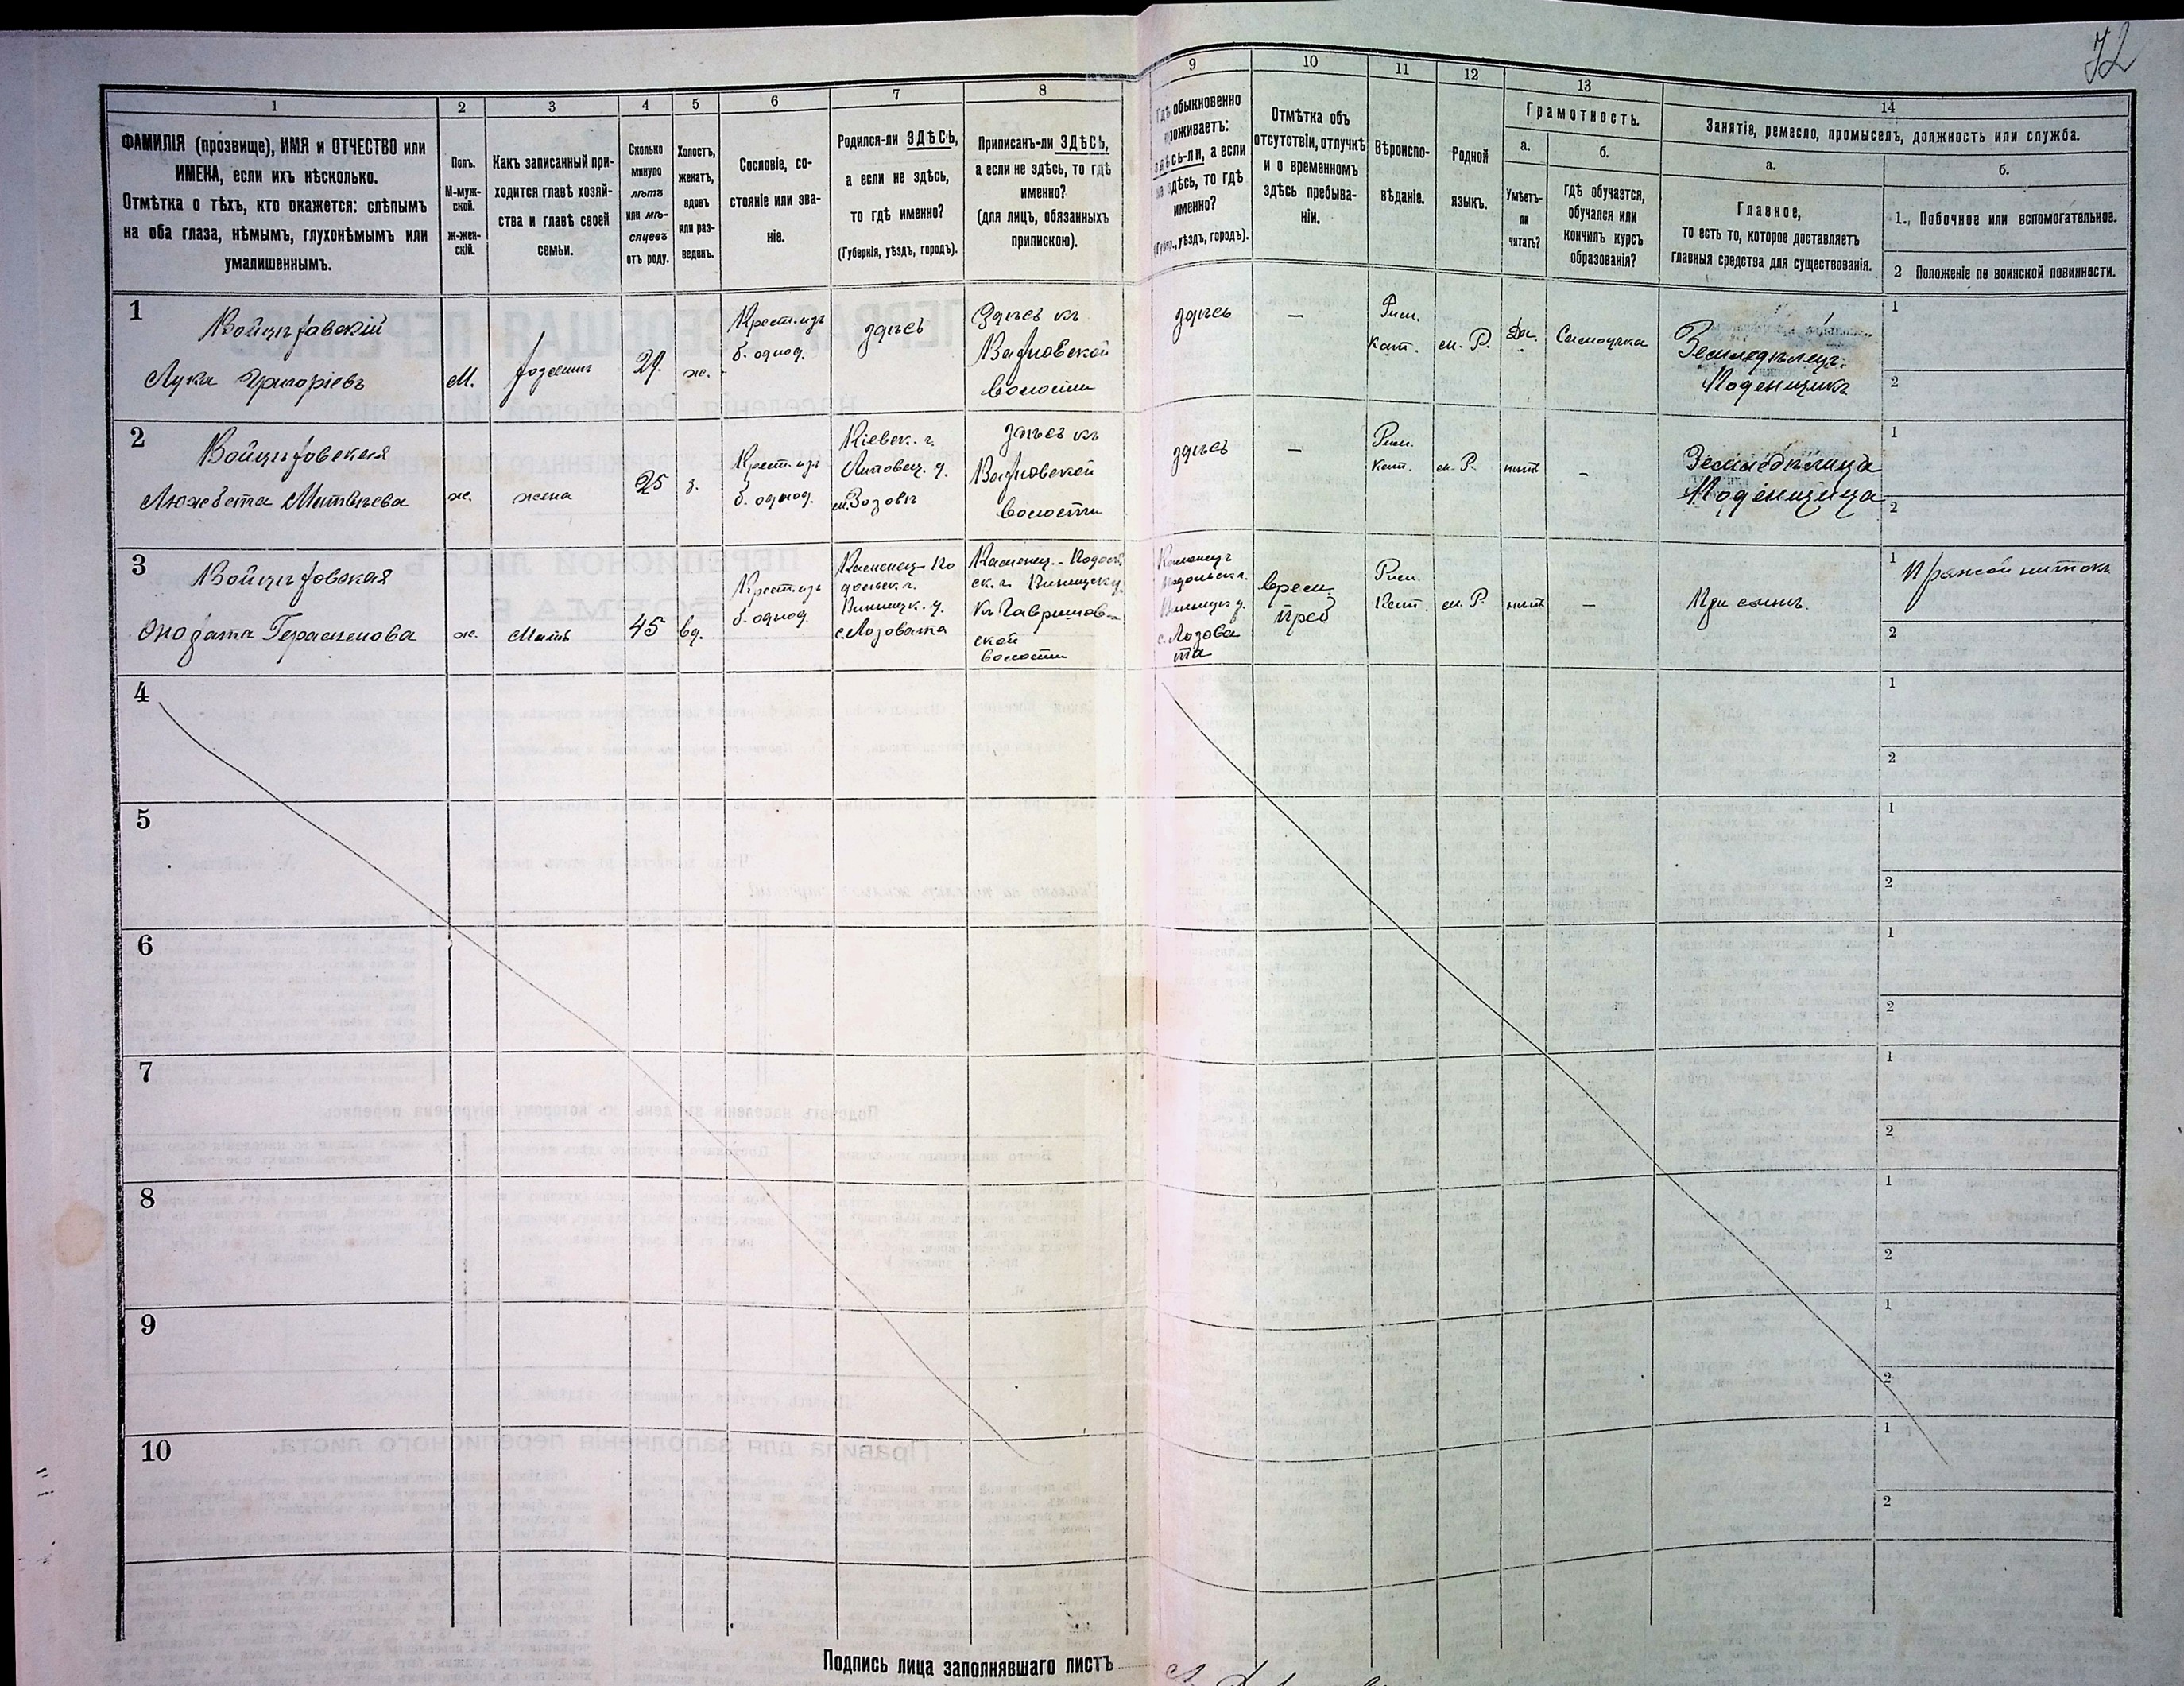 72
1
2
3
4
5
6
7
8
9
10
11
12
13
14
ФАМИЛІЯ (прозвище), ИМЯ и ОТЧЕСТВО или
ИМЕНА, если ихъ нѣсколько.
Отмѣтка о тѣхъ, кто окажется: слѣпымъ
на оба глаза, нѣмымъ, глухонѣмымъ или
умалишеннымъ.
Полъ.
М-муж-
ской.
ж-жен-
скій.
Какъ записанный при-
ходится главѣ хозяй-
ства и главѣ своей
семьи.
Сколько
минуло
лѣтъ
или мѣ-
сяцевъ
отъ роду.
Холостъ,
женатъ,
вдовъ
или раз-
веденъ.
Сословіе, со-
стояніе или зва-
ніе.
Родился-ли ЗДѢСЬ,
а если не здѣсь,
то гдѣ именно?
(Губернія, уѣздъ, городъ).
Приписанъ-ли ЗДѢСЬ,
а если не здѣсь, то гдѣ
именно?
(для лицъ, обязанныхъ
припискою).
Гдѣ обыкновенно
проживаетъ:
здѣсь-ли, а если
не здѣсь, то гдѣ
именно?
(Губер., уѣздъ, городъ).
Отмѣтка объ
отсутствіи, отлучкѣ
и о временномъ
здѣсь пребыва-
ніи.
Вѣроиспо-
вѣданіе.
Родной
языкъ.
Грамотность.
а.
Умѣетъ-
ли
читать?
б.
гдѣ обучается,
обучался или
кончилъ курсъ
образованія?
Занятіе, ремесло, промыселъ, должность или служба.
а.
Главное,
то есть то, которое доставляетъ
главныя средства для существованія.
б.
1., Побочное или вспомогательное.
2 Положеніе по воинской повинности.
1
Войцѣховскій
Лука Григоріевъ
М.
хозяинъ
29
ж.
Крест. изъ
б. однод.
здѣсь
Здѣсь къ
волости
здѣсь
—
Рим.
Кат.
м. Р.
Да.
Самоучка
Земледѣлецъ
Поденщикъ
1
2
2
Войцѣховская
Матвѣева
ж.
жена
25
з.
Крест. изъ
б. однод.
Кіевск. г.
Липовец. у.
здѣсь къ
волости
здѣсь
—
Рим.
Кат.
м. Р.
нѣтъ
–
Земледѣлица
Поденщица
1
2
3
Войцѣховская
Герасимова
ж.
Мать
45
вд.
Крест. изъ
б. однод.
Каменец-По
дольск. г.
Винницк. у.
с. Лозовата
Каменец.-Подоль
ск. г. Винницк у.
къ Гавришов-
ской
волости
Каменецъ
Подольск г.
Винницк у.
с. Лозова
та
врем.
преб
Рим.
Кат.
м. Р.
нѣтъ
–
При сынѣ.
1 Пряжей нитокъ
2
4
1
2
5
1
2
6
1
2
7
1
2
8
1
2
9
1
2
10
1
2
Подпись лица заполнявшаго листъ